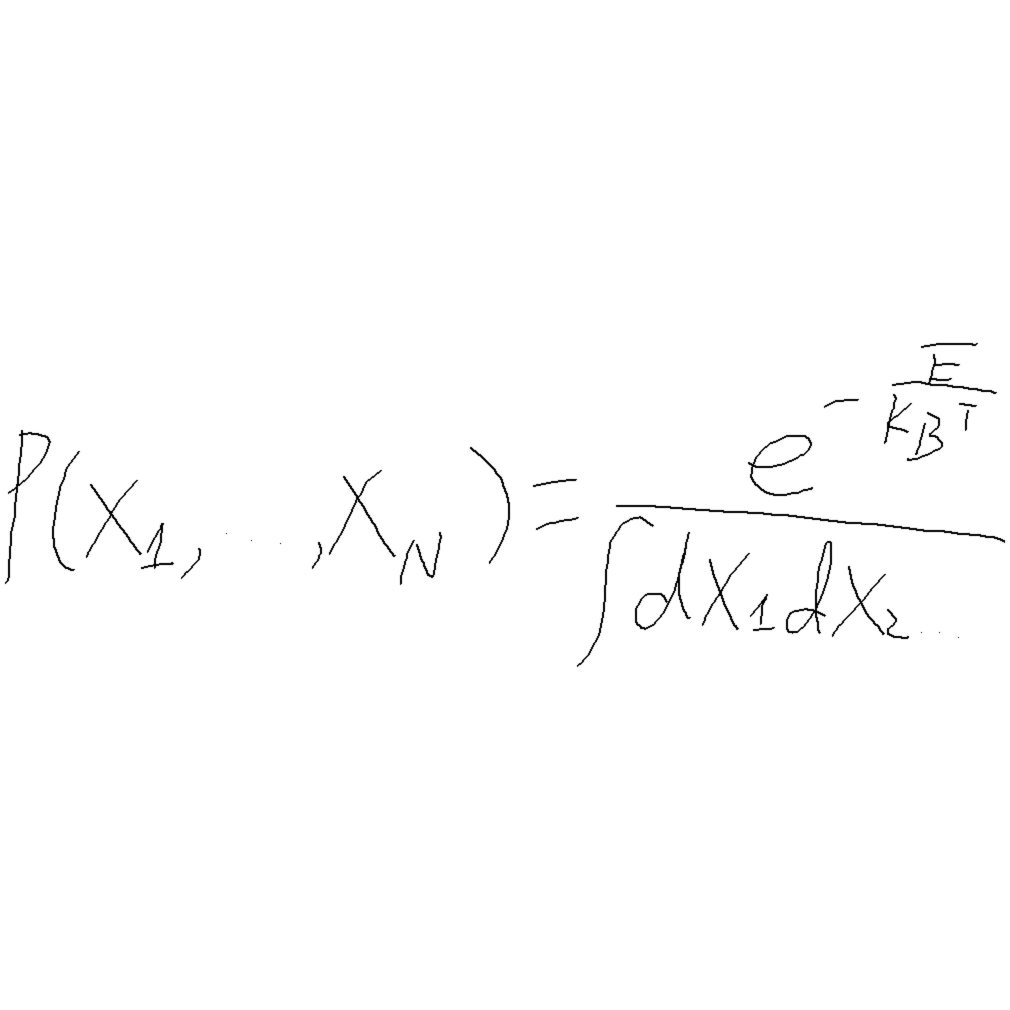 P(X₁, ..., X_N) = e^(-E/K_B T) / ∫dX₁dX₂...